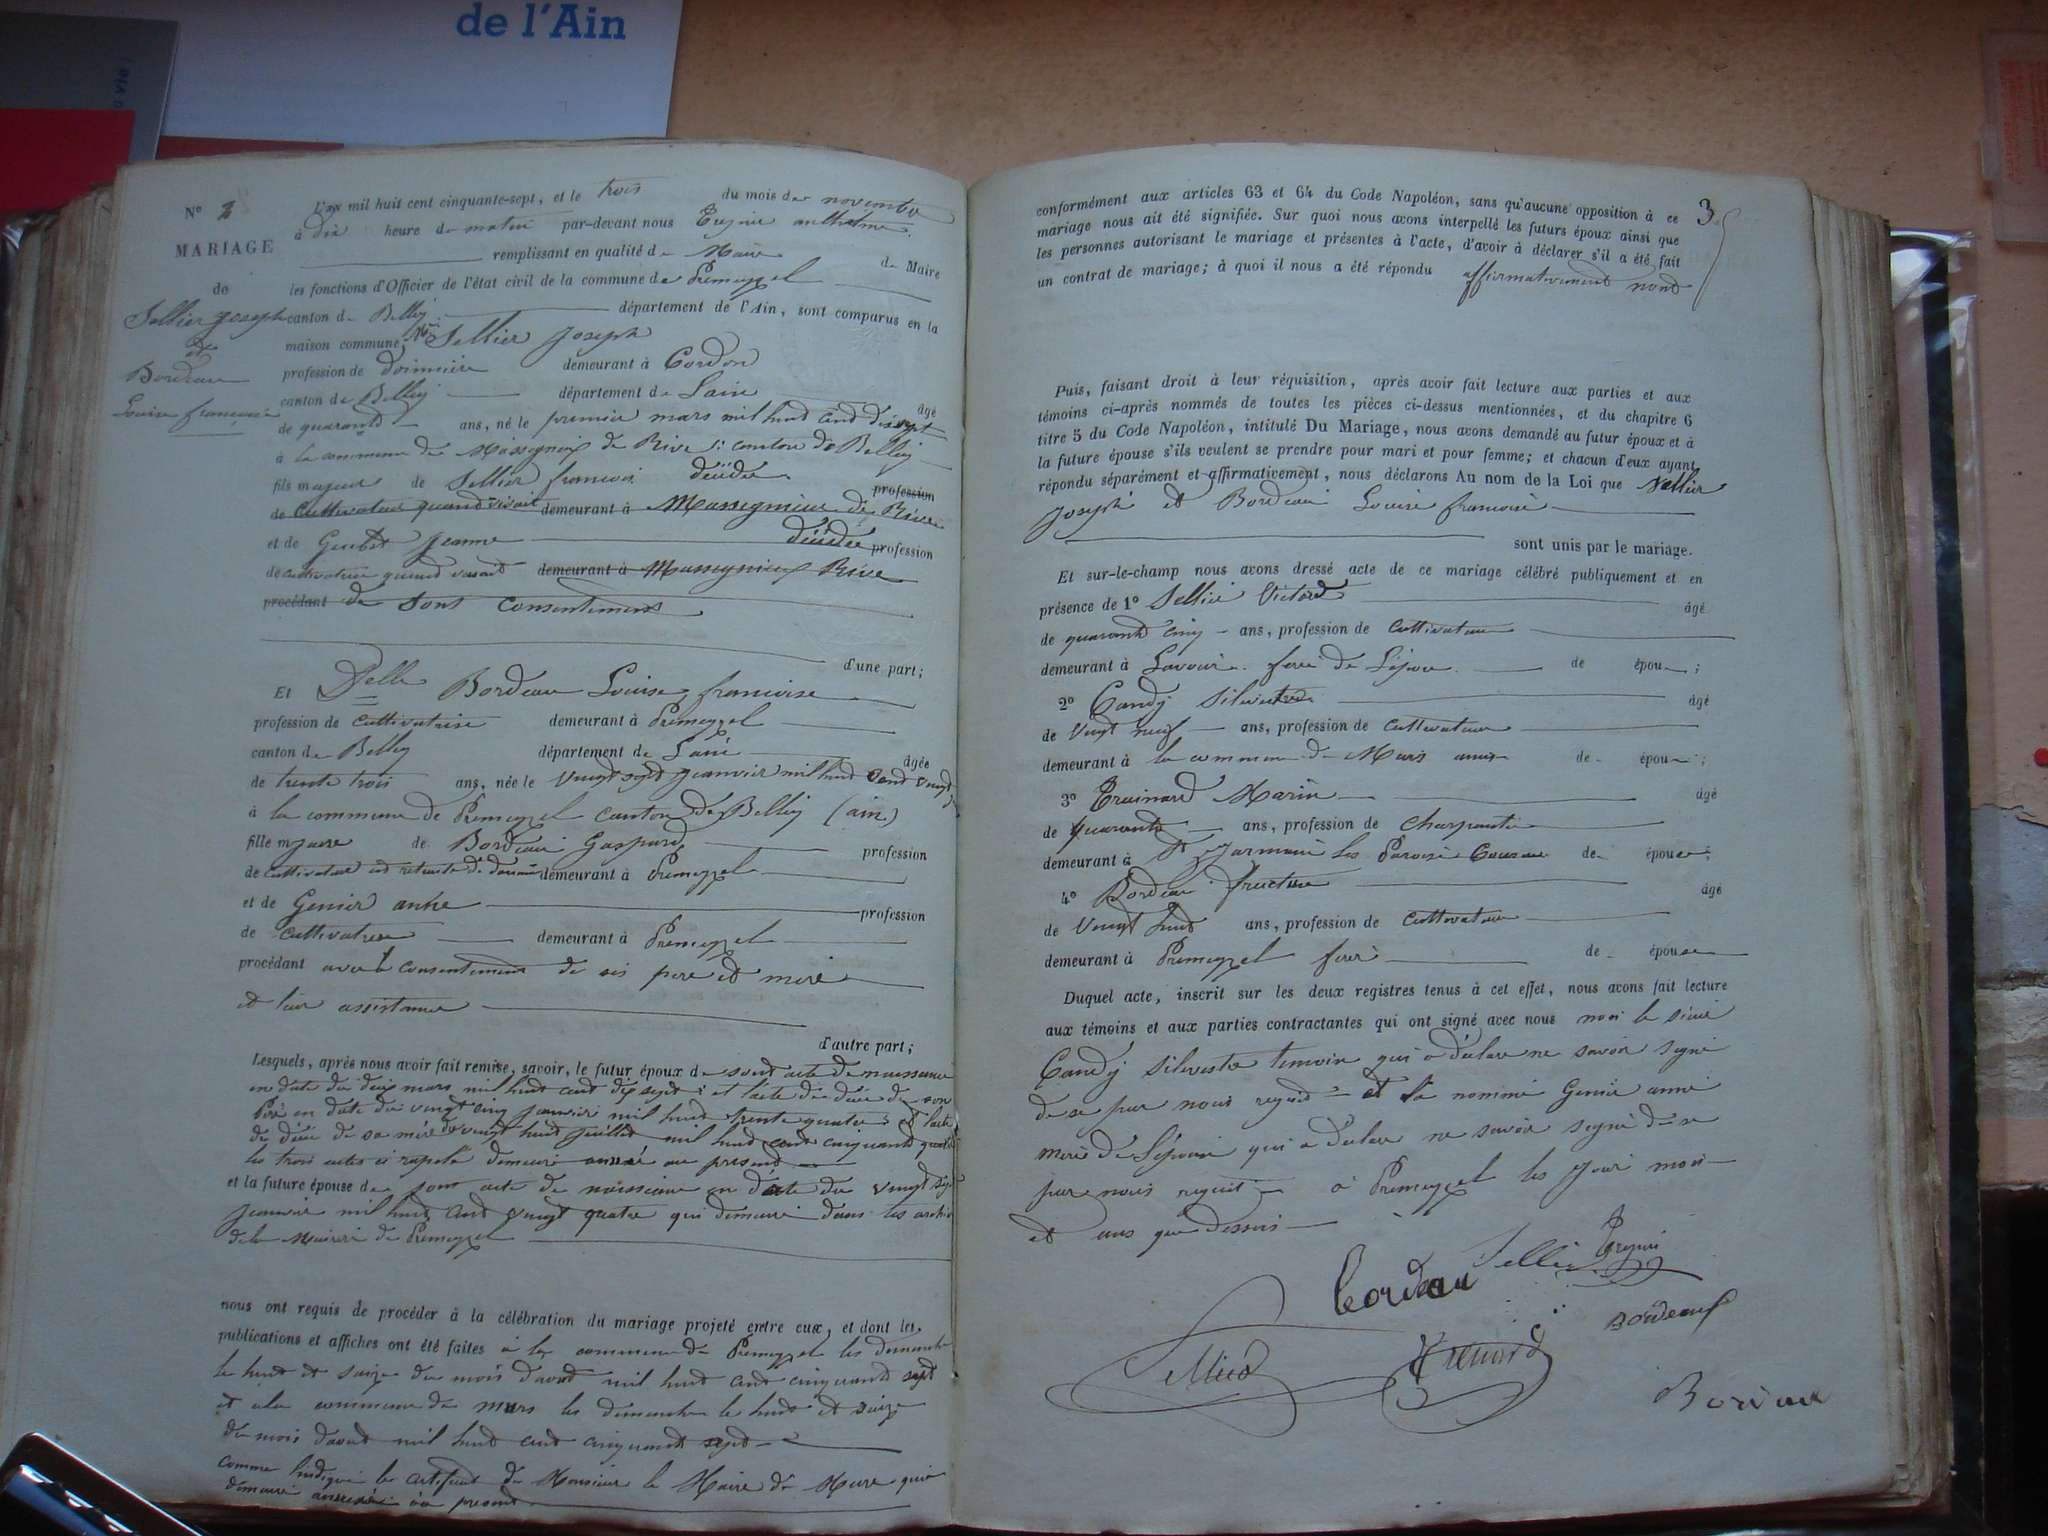 de l'Ain
a vie
N° 2
MARIAGE
de
Sellier Joseph
et
Bordeau
Louise francoise
L'an mil huit cent cinquante-sept, et le trois du mois de novembre
à dix heure de matin par-devant nous anthelme
remplissant en qualité de Maire de Maire
les fonctions d'Officier de l'état civil de la commune de Premeyzel
canton de Belley département de l'Ain, sont comparus en la
maison commune Sellier Joseph
profession de demeurant à Cordon
canton de Belley département de Lain
âgé
de quarante ans, né le premier mars mil huit cent dix sept
à la commune de Massignieu de Rive canton de Belley
fils majeur de Sellier francois décédé profession
de Cultivateur quand vivait demeurant à Massignieu de Rive
et de Jeanne décédée profession
de cultivatrice quand vivait demeurant à Massignieu Rive
procédant de sont consentement
d'une part;
Et Delle Bordeau Louise francoise
profession de cultivatrice demeurant à Premeyzel
canton de Belley département de Lain
âgée
de trente trois ans, née le vingt sept janvier mil huit cent vingt
à la commune de Premeyzel canton de Belley (ain)
fille majeure de Bordeau Gaspard profession
de cultivateur et retraité de douane demeurant à Premeyzel
et de Genier anne profession
de cultivatrice demeurant à Premeyzel
procédant avec le consentement de ses pere et mere
et leur assistance
d'autre part;
Lesquels, après nous avoir fait remise, savoir, le futur époux de sont acte de naissance
en date du deux mars mil huit cent dix sept et l'acte de décé de son
Père en date du vingt cinq janvier mil huit trente quatre et l'acte
de décé de sa mère du vingt huit juillet mil huit cent cinquante quatre
les trois actes ci rapelé demeuré annexé au present
et la future épouse de sont acte de naissance en date du vingt sept
janvier mil huit cent vingt quatre qui demeure dans les archives
de la Mairie de Premeyzel
nous ont requis de procéder à la célébration du mariage projeté entre eux, et dont les
publications et affiches ont été faites à la commune de Premeyzel les dimanche
le huit et seize du mois d'aout mil huit cent cinquante sept
et a la commune de murs les dimanche le huit et seize
du mois d'aout mil huit cent cinquante sept
comme l'indique le certificat de Monsieur le Maire de Mure qui
demeure annexé au present
3
conformément aux articles 63 et 64 du Code Napoléon, sans qu'aucune opposition à ce
mariage nous ait été signifiée. Sur quoi nous avons interpellé les futurs époux ainsi que
les personnes autorisant le mariage et présentes à l'acte, d'avoir à déclarer s'il a été fait
un contrat de mariage; à quoi il nous a été répondu affirmativement nond
Puis, faisant droit à leur réquisition, après avoir fait lecture aux parties et aux
témoins ci-après nommés de toutes les pièces ci-dessus mentionnées, et du chapitre 6
titre 5 du Code Napoléon, intitulé Du Mariage, nous avons demandé au futur époux et à
la future épouse s'ils veulent se prendre pour mari et pour femme; et chacun d'eux ayant
répondu séparément et affirmativement, nous déclarons Au nom de la Loi que Sellier
Joseph et Bordeau Louise francoise
sont unis par le mariage.
Et sur-le-champ nous avons dressé acte de ce mariage célébré publiquement et en
présence de 1° Sellier Victor âgé
de quarante cinq ans, profession de cultivateur
demeurant à de époux;
2° Candy Silvestre âgé
de vingt neuf ans, profession de cultivateur
demeurant à la commune de Murs de époux;
3° âgé
de quarante ans, profession de charpentier
demeurant à St Jarmain les Paroise de épouse;
4° Bordeau âgé
de vingt huit ans, profession de cultivateur
demeurant à Premeyzel de épouse
Duquel acte, inscrit sur les deux registres tenus à cet effet, nous avons fait lecture
aux témoins et aux parties contractantes qui ont signé avec nous
Candy Silvestre temoin qui a déclaré ne savoir signé
de ce par nous requis et la nommé Genier anne
mere de qui a déclaré ne savoir signé de ce
par nous requis à Premeyzel les jour mois
et ans que dessus
Bordeau
Sellier
bordeaux
Bordeau